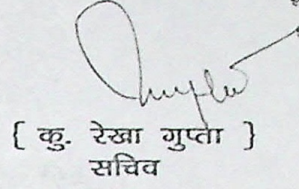 { कु. रेखा गुप्ता }
सचिव